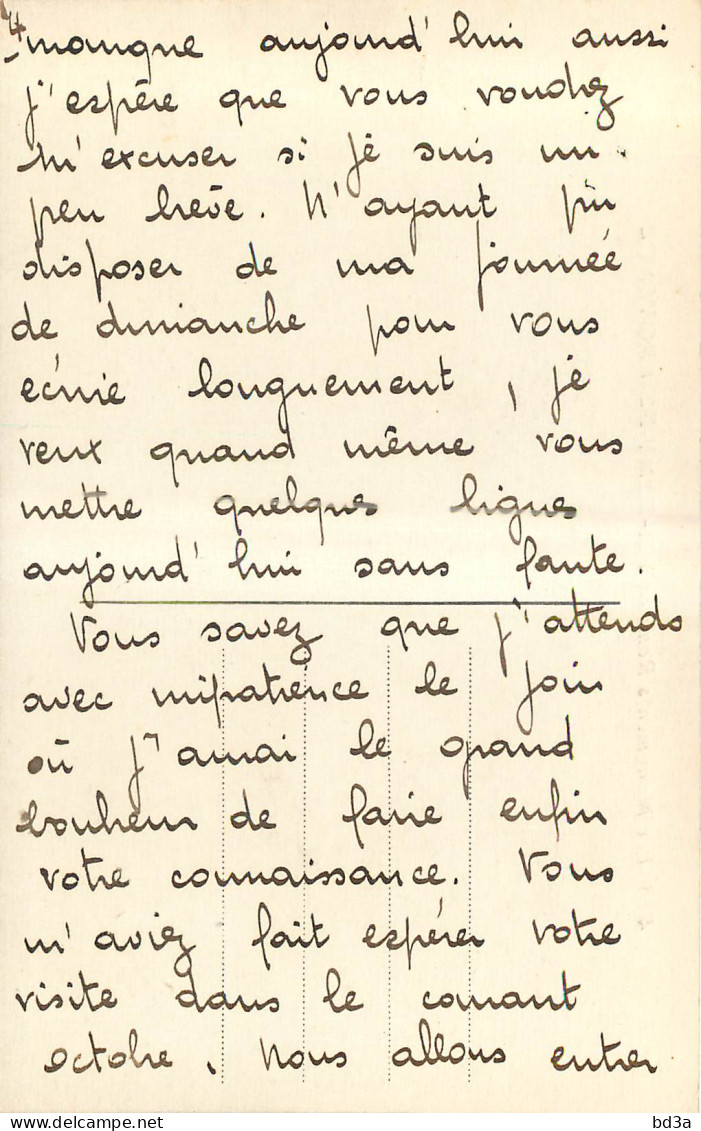 4
manque aujourd'hui aussi
j'espère que vous voudrez
m'excuser si je suis un
peu brève. N'ayant pu
disposer de ma journée
de dimanche pour vous
écrire longuement, je
veux quand même vous
mettre quelques lignes
aujourd'hui sans faute.
Vous savez que j'attends
avec impatience le jour
où j'aurai le grand
bonheur de faire enfin
votre connaissance. Vous
m'aviez fait espérer votre
visite dans le courant
octobre. Nous allons entrer
www.delcampe.net
bd3a